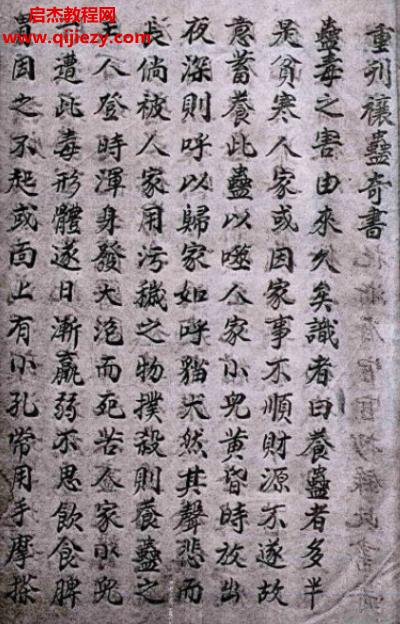 启杰易经网
www.qijiezy.com
重刋禳蠱奇書
蠱毒之害由來久矣識者曰養蠱者多半
是貧寒人家或因家事不順財源不遂故
意蓄養此蠱以噬人家小兒黄昏時放出
夜深則呼以歸家如呼猫犬然其聲悲而
長倘被人家用污穢之物撲殺則養蠱之
人登時渾身發大泡而死若人家小兒
遭此毒形體遂日漸羸弱不思飲食脾
因之不起或面上有小孔常用手摩搽